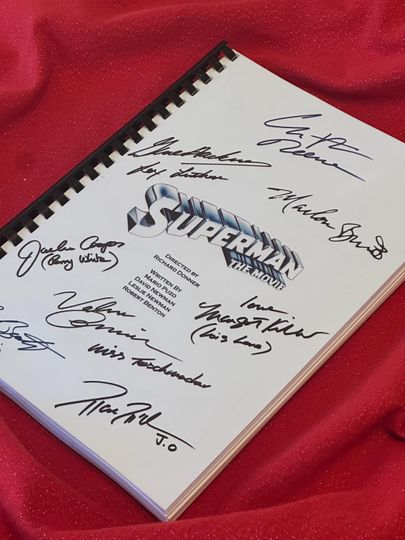 Christopher
Reeve
Gene Hackman
Lex Luthor
Marlon Brando
SUPERMAN
THE MOVIE
Jackie Cooper
(Perry White)
DIRECTED BY
RICHARD DONNER
WRITTEN BY
MARIO PUZO
DAVID NEWMAN
LESLIE NEWMAN
ROBERT BENTON
Love
Margot Kidder
(Lois Lane)
Valerie
Perrine
Miss Teschmacher
Marc
J.O